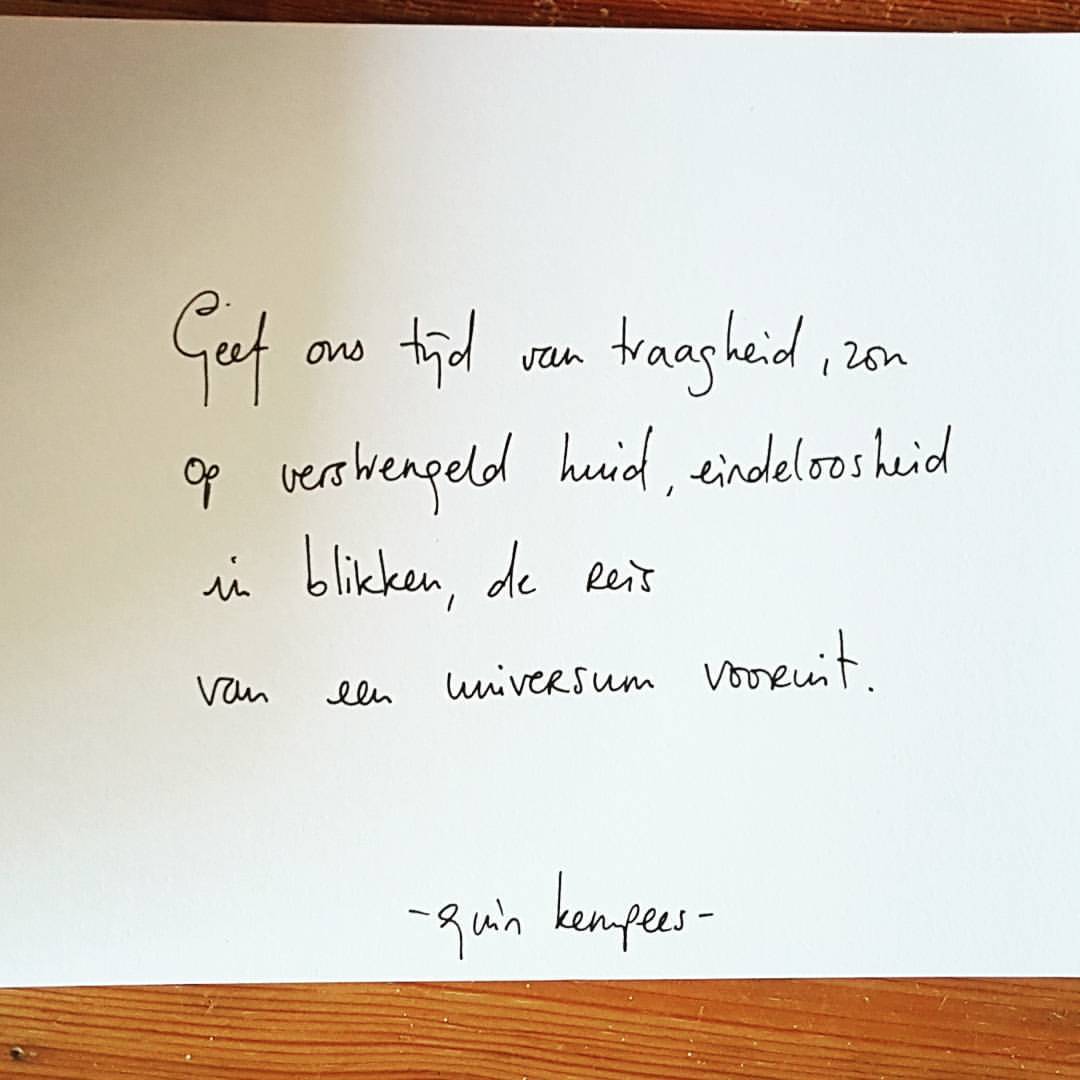 Geef ons tijd van traagheid, zon
op verstrengeld huid, eindeloosheid
in blikken, de reis
van een universum vooruit.
-quin kempees-